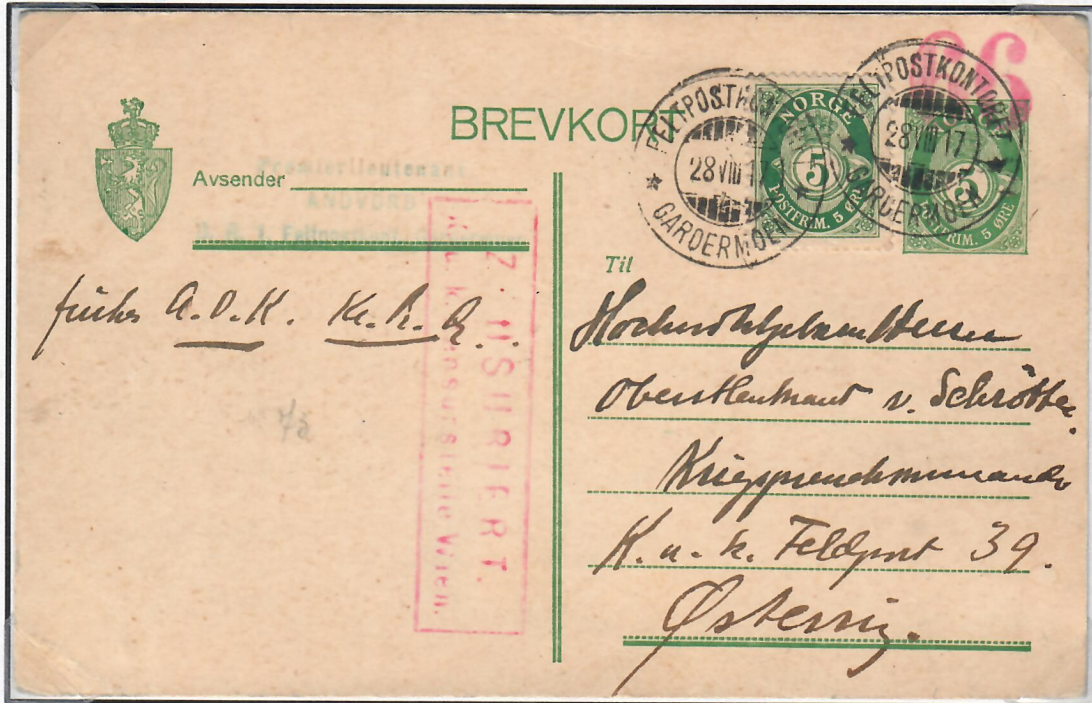 66
BREVKORT
FELTPOSTKONTORET
28 VIII 17
GARDERMOEN
NORGE
5
POSTFRIM. 5 ØRE
FELTPOSTKONTORET
28 VIII 17
GARDERMOEN
5
POSTFRIM. 5 ØRE
Avsender
Premierlieutenant
ANDVORD
Til
früher A.O.K. K.P.Q.
ZENSURIERT.
K. u. k. Zensurstelle Wien.
Hochwohlgeboren Herrn
Oberstleutnant v. Schrötter.
Kriegspressekommando
K. u. k. Feldpost 39.
Østerrig.